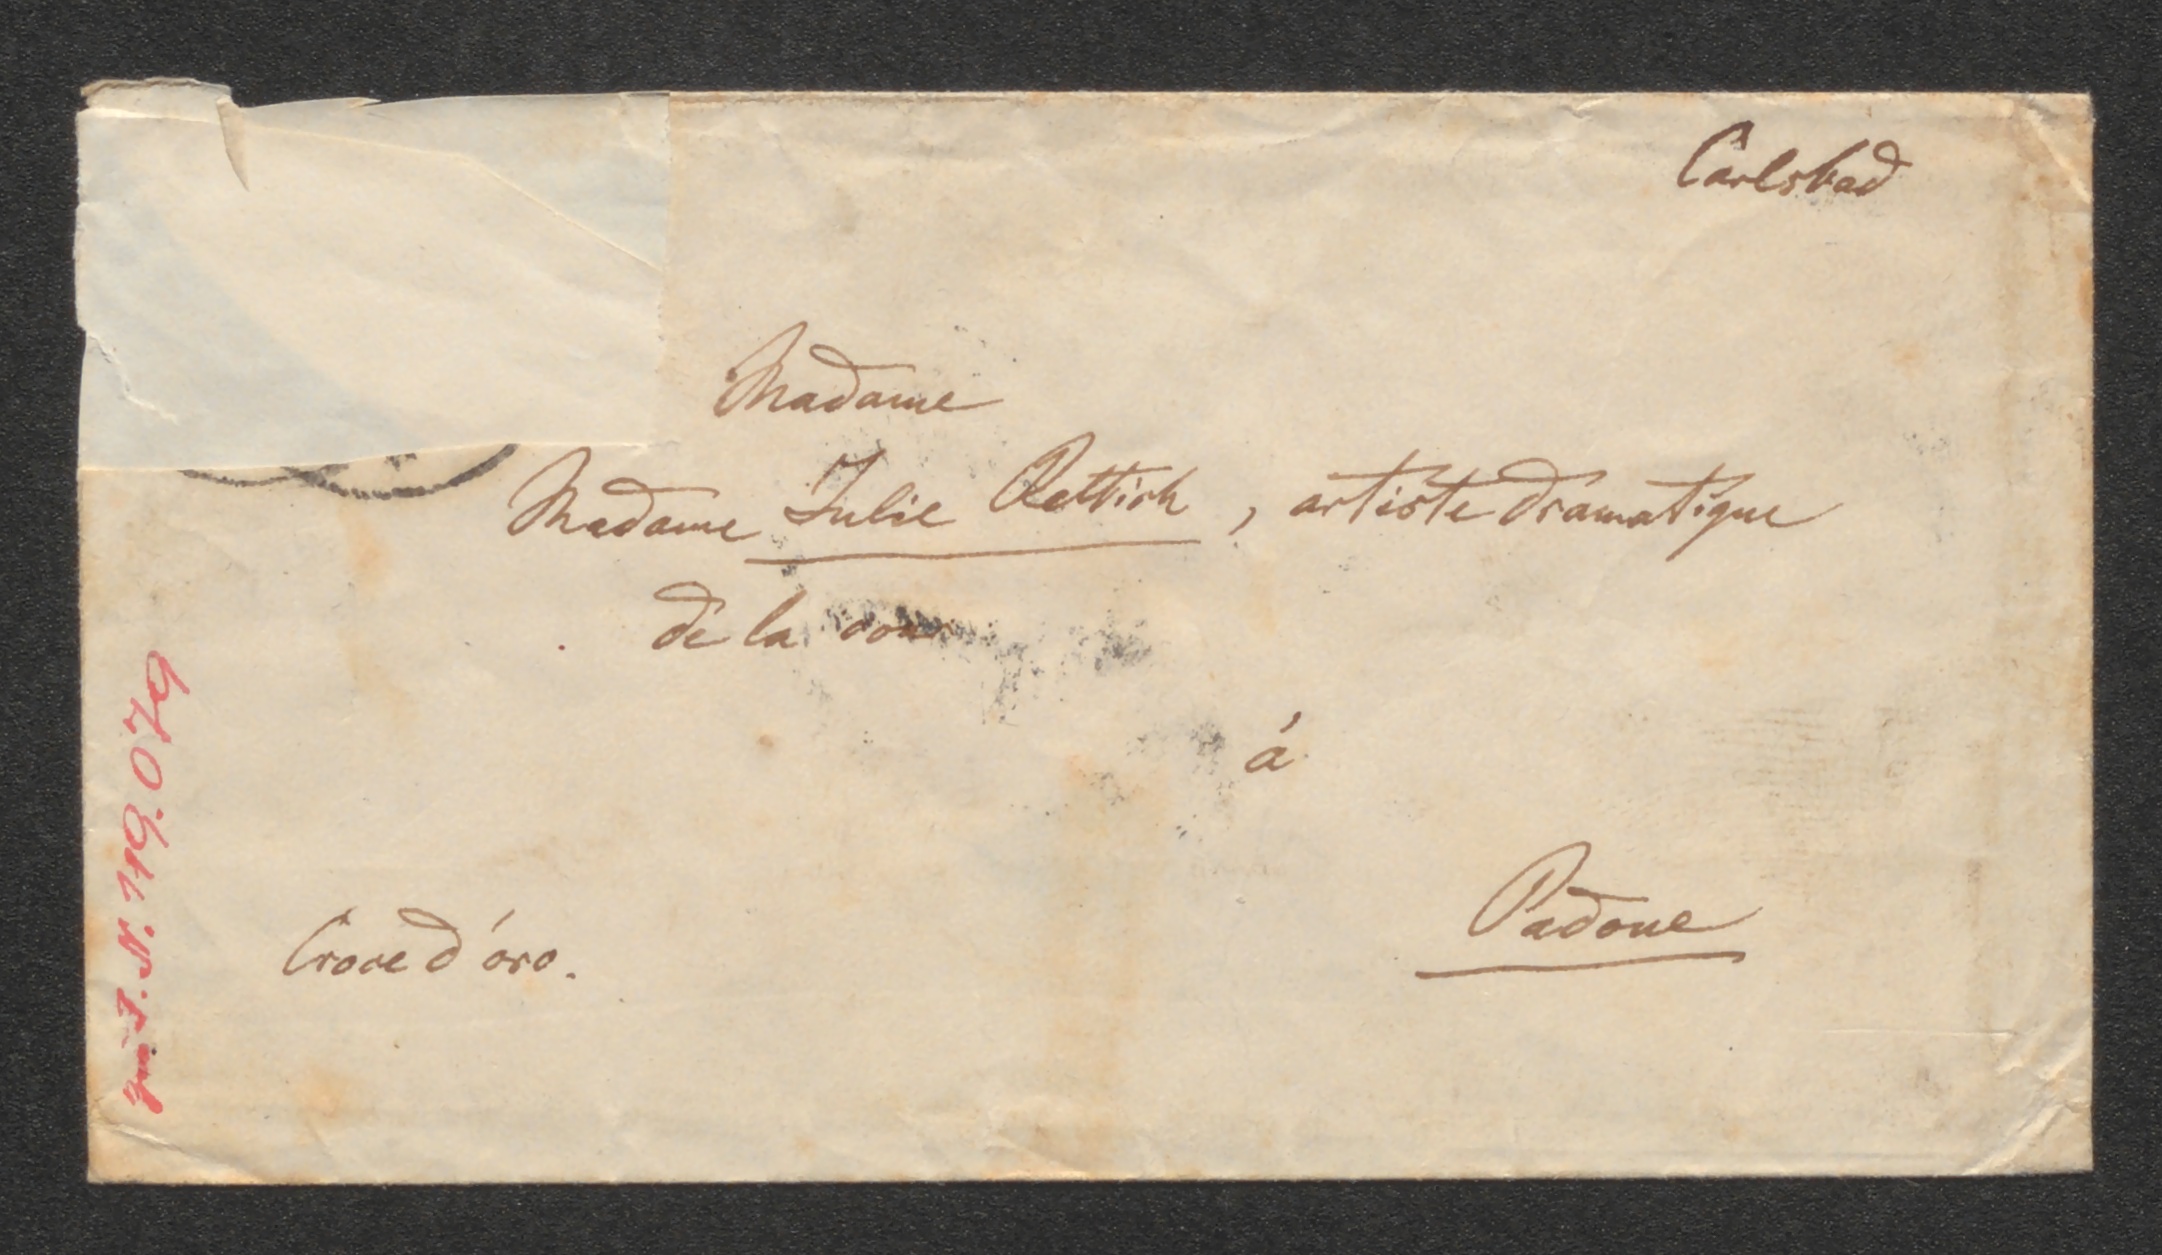 Carlsbad
Madame
Madame Julie Rettich, artiste dramatique
de la cour
á
Padoue
Croce d'oro.
zu I.N. 119.079